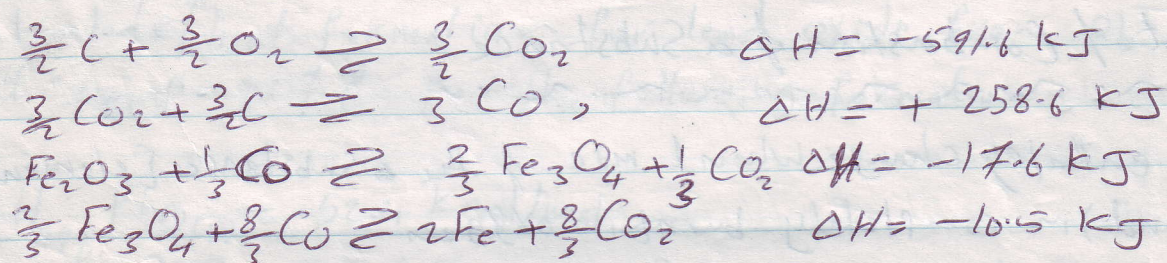 3/2 C + 3/2 O₂ ⇌ 3/2 CO₂ ΔH = -591.6 KJ
3/2 CO₂ + 3/2 C ⇌ 3 CO, ΔH = + 258.6 KJ
Fe₂O₃ + 1/3 CO ⇌ 2/3 Fe₃O₄ + 1/3 CO₂ ΔH = -17.6 KJ
2/3 Fe₃O₄ + 8/3 CO ⇌ 2Fe + 8/3 CO₂ ΔH = -10.5 KJ